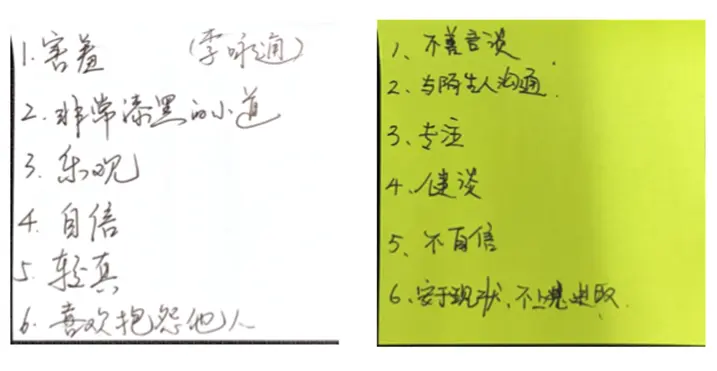 1. 害羞 (李咏通)
2. 非常漆黑的小道
3. 乐观
4. 自信
5. 较真
6. 喜欢抱怨他人
1、不善言谈
2、与陌生人沟通
3、专注
4、健谈
5、不自信
6、安于现状,不上进取